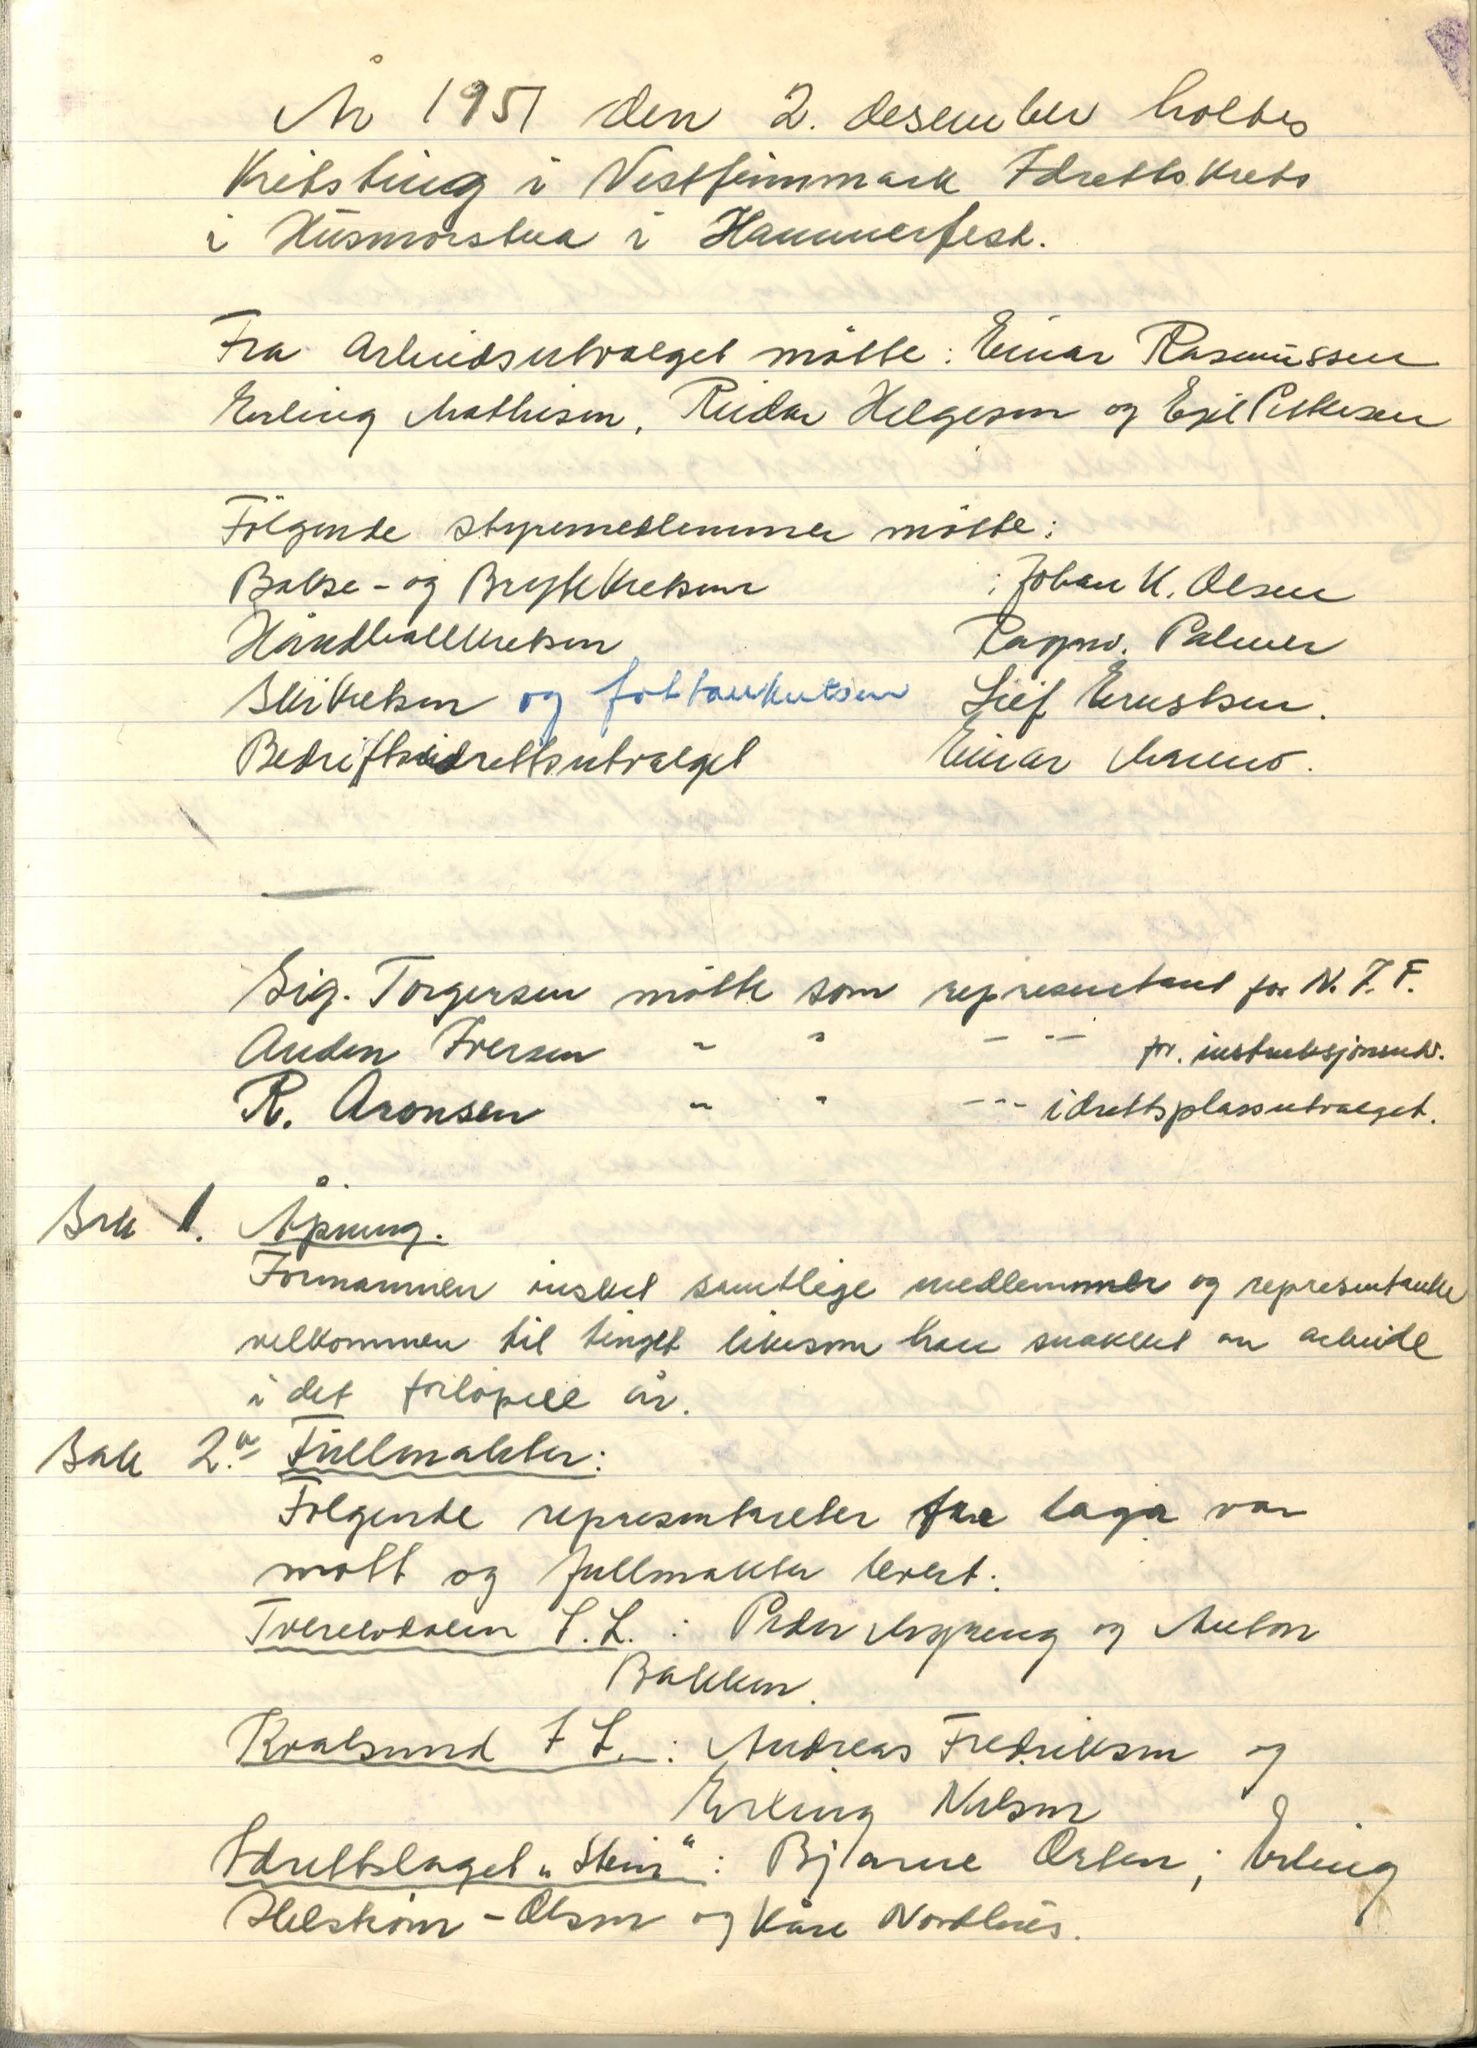 År 1951 den 2. desember holdtes
Kretsting i Vestfinnmark Idrettskrets
i Husmorstua i Hammerfest.
Fra arbeidsutvalget møtte: Einar Rasmussen
Erling Mathisen, Reidar Helgesen og Egil Pettersen
Følgende styremedlemmer møtte:
Bokse- og Brytekretsen : Johan K. Olsen
Håndballkretsen Ragnv. Palmer
Skikretsen og fotballkretsen Leif Ernstsen.
Bedriftsidrettsutvalget Einar
Sig. Torgersen møtte som representant for N.I.F.
Auden Iversen " " - -- for. instruksjonsutv.
R. Aronsen " " --- idrettsplassutvalget.
Sak 1. Åpning.
Formannen ønsket samtlige medlemmer og representanter
velkommen til tinget likesom han snakket om arbeidet
i det forløpne år.
Sak 2.a Fullmakter:
Følgende representanter fra laga var
møtt og fullmakter levert:
Tverrelvdalen I.L. : Peder og Anton
Bakken.
Kvalsund I L. : Andreas Fredriksen og
Erling Nilsen
Idrettslaget „Stein" : Bjarne Ørten ; Erling
Helstrøm - Olsen og Kåre Nordhus.